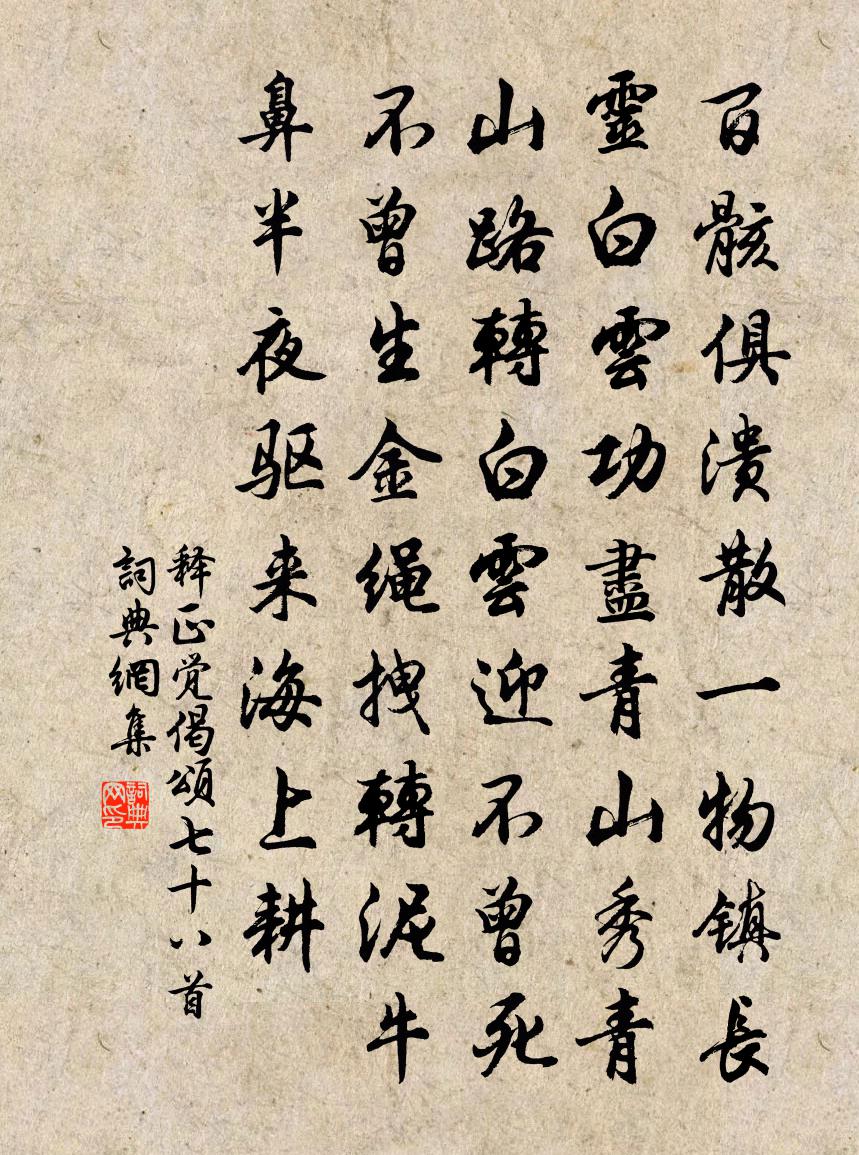 百骸俱潰散一物镇長
靈白雲功盡青山秀青
山路轉白雲迎不曾死
不曾生金绳拽轉泥牛
鼻半夜驱来海上耕
释正觉偈頌七十八首
詞典網集
詞典网印